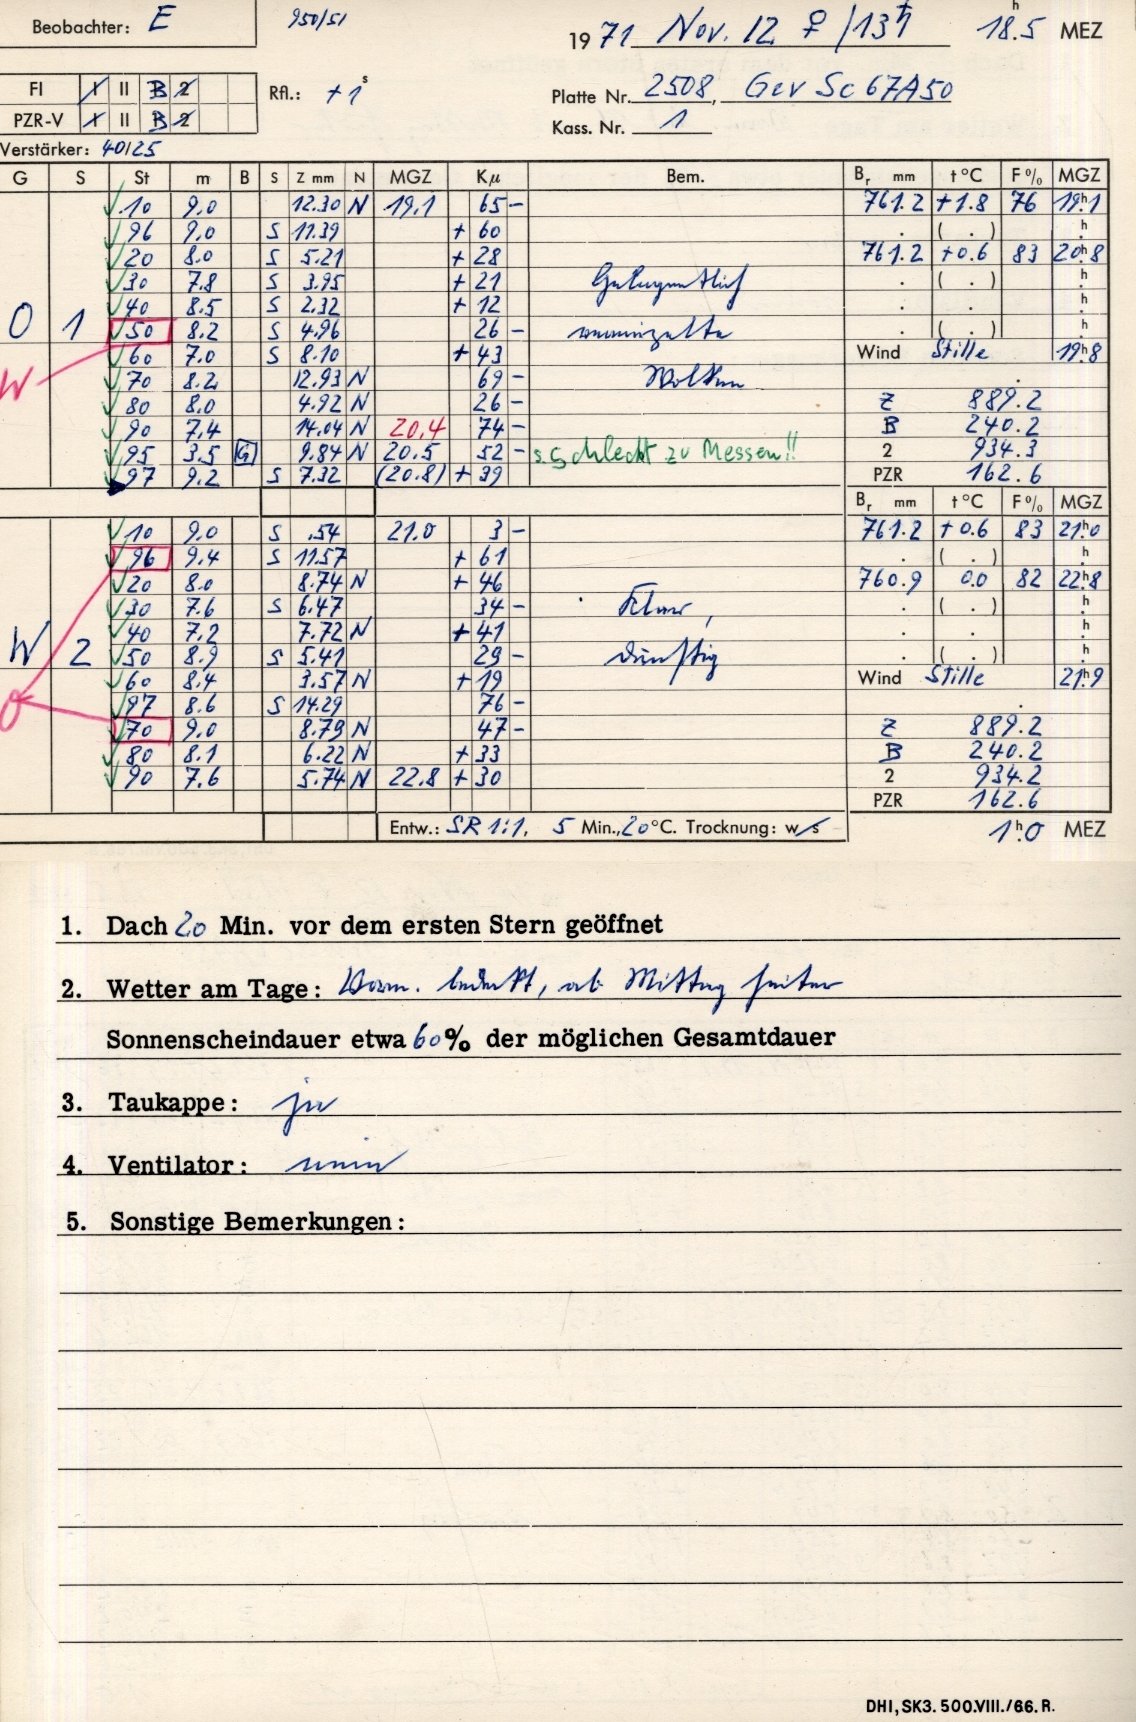 Beobachter: E 950/51
1971 Nov. 12 ♀ /13 ♄ 18.5 h MEZ
FI I II B 2 Rfl.: +1 s
Platte Nr. 2508, Gev Sc 67A50
PZR-V I II B 2
Kass. Nr. 1
Verstärker: 40/25
G S St m B S Z mm N MGZ Kμ Bem. Br mm t °C F % MGZ
10 9.0 12.30 N 19.1 65 – 761.2 +1.8 76 19h.1
96 9.0 S 11.39 + 60 . ( . ) h
20 8.0 S 5.21 + 28 761.2 +0.6 83 20h.8
30 7.8 S 3.95 + 21 Gelegentlich . ( . ) h
40 8.5 S 2.32 + 12 . . h
O 1 50 8.2 S 4.96 26 – vereinzelte . ( . ) h
60 7.0 S 8.10 + 43 Wind Stille 19h.8
W 70 8.2 12.93 N 69 – Wolken
80 8.0 4.92 N 26 – Z 889.2
90 7.4 14.04 N 20,4 74 – B 240.2
95 3.5 G 9.84 N 20.5 52 – s. schlecht zu Messen!! 2 934.3
97 9.2 S 7.32 (20.8) + 39 PZR 162.6
Br mm t °C F % MGZ
10 9.0 S .54 21.0 3 – 761.2 +0.6 83 21h.0
96 9.4 S 11.57 + 61 . ( . ) h
20 8.0 8.74 N + 46 760.9 0.0 82 22h.8
30 7.6 S 6.47 34 – Klar, . ( . ) h
40 7.2 7.72 N + 41 . . h
W 2 50 8.9 S 5.41 29 – dunstig . ( . ) h
60 8.4 3.57 N + 19 Wind Stille 21h.9
O 97 8.6 S 14.29 76 –
70 9.0 8.79 N 47 – Z 889.2
80 8.1 6.22 N + 33 B 240.2
90 7.6 5.74 N 22.8 + 30 2 934.2
PZR 162.6
Entw.: SR 1:1, 5 Min., 20 °C. Trocknung: w/s 1h.0 MEZ
1. Dach 20 Min. vor dem ersten Stern geöffnet
2. Wetter am Tage: Vorm. bedeckt, ab Mittag heiter
Sonnenscheindauer etwa 60% der möglichen Gesamtdauer
3. Taukappe: ja
4. Ventilator: nein
5. Sonstige Bemerkungen:
DHI, SK3. 500.VIII./66. R.